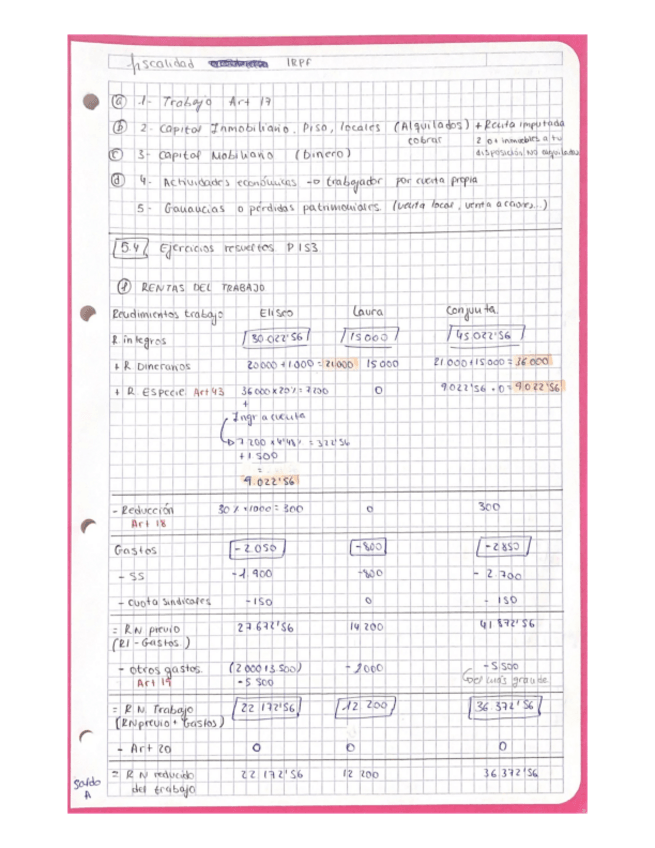 fiscalidad IRPF
a 1- Trabajo Art 17
b 2- Capital Inmobiliario. Piso, locales (Alquilados) + Renta imputada
cobrar 2 o + inmuebles a tu
c 3- Capital Mobiliario (Dinero) disposición/NO alquilados
d 4- Actividades económicas -o trabajador por cuenta propia
5- Ganancias o pérdidas patrimoniales (venta local, venta acciones...)
5.4 Ejercicios resueltos P153
1 RENTAS DEL TRABAJO
Rendimientos trabajo Eliseo Laura Conjunta
R integros 30.022'56 15000 45.022'56
+ R Dinerarios 20000 + 1000 = 21000 15000 21000 + 15000 = 36000
+ R Especie Art 43 36000 x 20% = 7200 0 9.022'56 + 0 = 9.022'56
+
Ingr a cuenta
7200 x 4'48% = 322'56
+ 1500
=
9.022'56
- Reducción 30% x 1000 = 300 0 300
Art 18
Gastos -2.050 -800 -2850
- SS -1.900 -800 - 2.700
- cuota sindicales -150 0 - 150
= RN previo 27672'56 14.200 41872'56
(RI - Gastos)
- otros gastos (2000 + 3500) - 2000 -5.500
Art 19 -5500 el más grande
= R N Trabajo 22 172'56 12 200 36.372'56
(RN previo + Gastos)
- Art 20 0 0 0
= R N reducido 22 172'56 12 200 36 372'56
del trabajo
Saldo
A